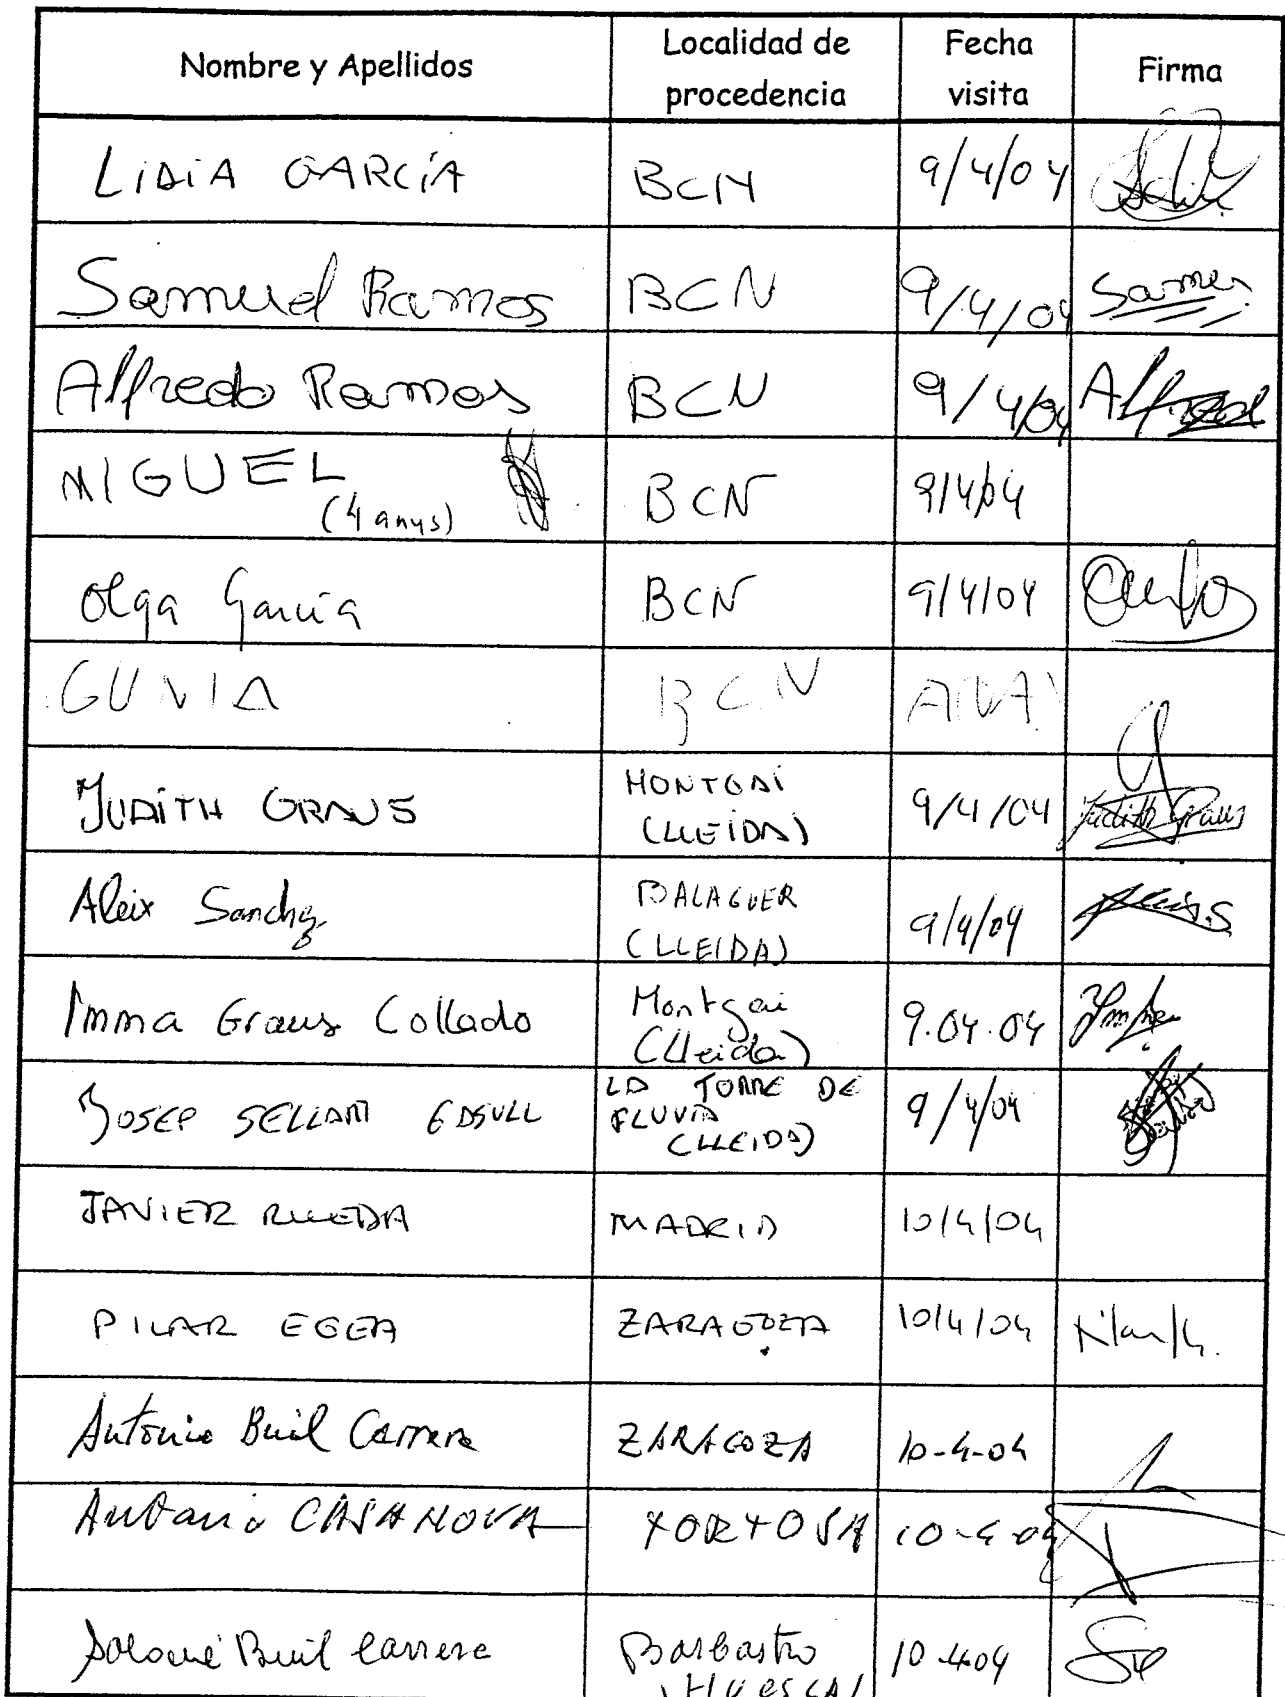 Nombre y Apellidos Localidad de procedencia Fecha visita Firma
LIDIA GARCÍA BCN 9/4/04
Samuel Ramos BCN 9/4/04 Samu
Alfredo Ramos BCN 9/4/04 Alfred
MIGUEL (4 anys) BCN 9/4/04
Olga García BCN 9/4/04
BCN
JUDITH GRAUS MONTGAI (LLEIDA) 9/4/04 Judith Graus
Aleix Sanchez BALAGUER (LLEIDA) 9/4/04
Imma Graus Collado Montgai (Lleida) 9.04.04
JOSEP LA TORRE DE FLUVIA (LLEIDA) 9/4/04
JAVIER RUEDA MADRID 10/4/04
PILAR EGEA ZARAGOZA 10/4/04
Antonio Buil Carrera ZARAGOZA 10-4-04
Antonio CASANOVA TORTOSA 10-4-04
Salomé Buil Carrera Barbastro (HUESCA) 10-4-04